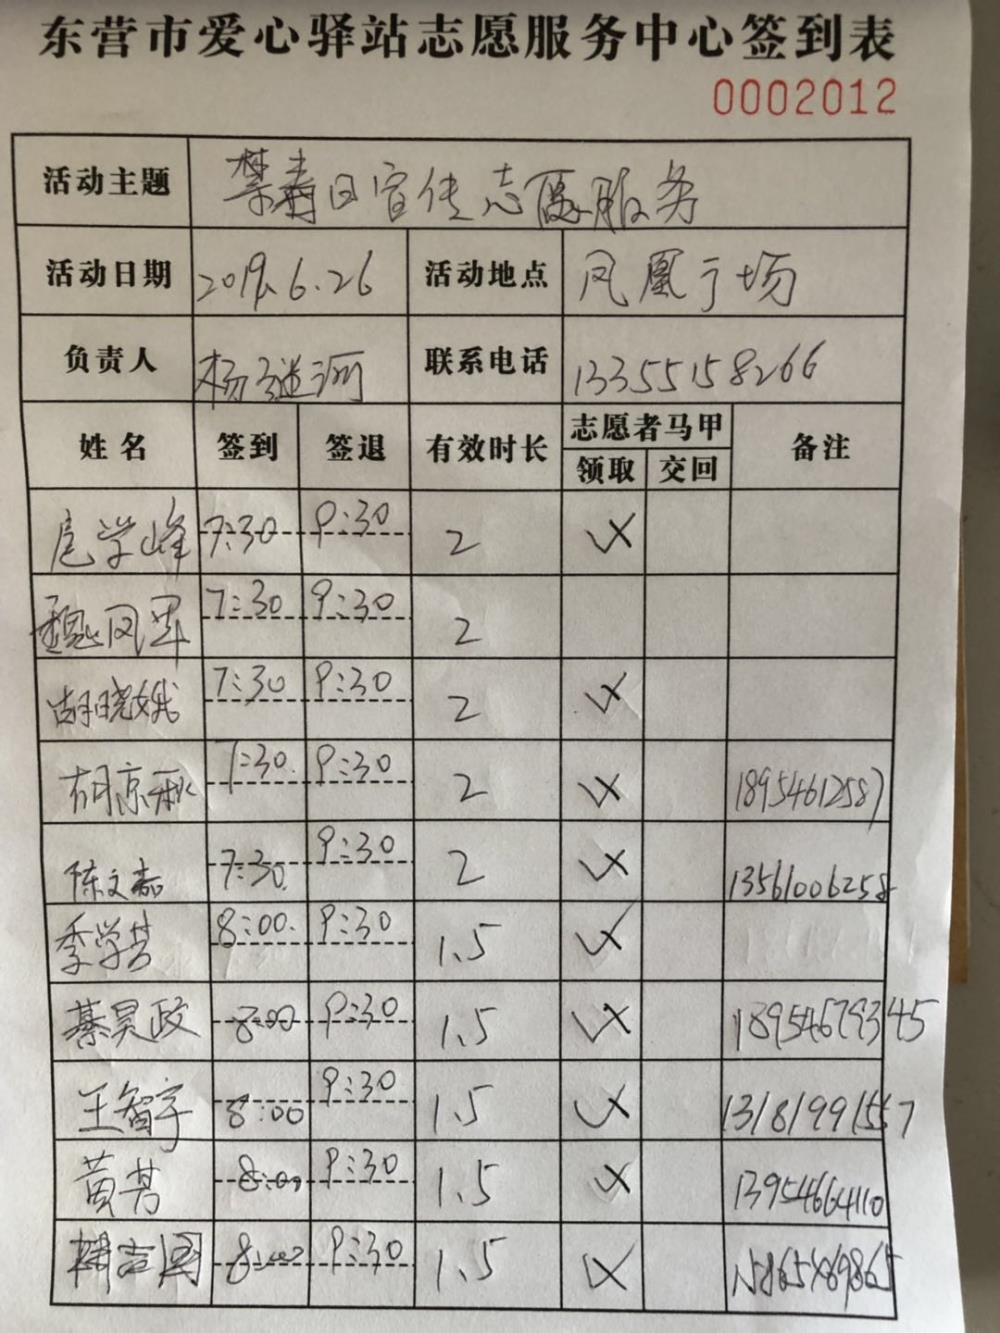 东营市爱心驿站志愿服务中心签到表
0002012
活动主题 禁毒日宣传志愿服务
活动日期 2019.6.26 活动地点 凤凰广场
负责人 杨 河 联系电话 13355158266
姓名 签到 签退 有效时长 志愿者马甲 备注
领取 交回
学峰 7:30 9:30 2
魏凤军 7:30 9:30 2
胡晓娥 7:30 9:30 2
胡京秋 7:30 9:30 2 18954612587
陈文嘉 7:30 9:30 2 13561006258
季学芸 8:00 9:30 1.5
綦昊政 8:00 9:30 1.5 18954679345
王智宇 8:00 9:30 1.5 13181991567
黄芳 8:00 9:30 1.5 13954664110
韩志国 8:00 9:30 1.5